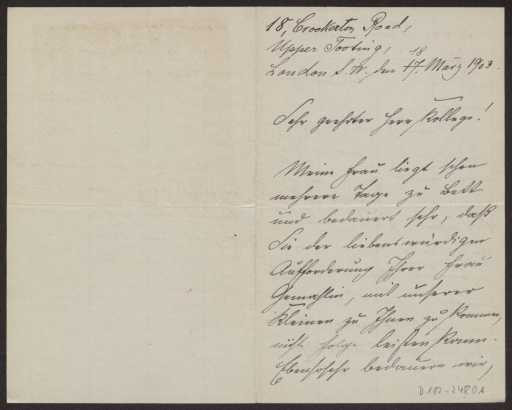 18, Crockerton Road,
Upper Tooting,
London S. W. den 17. 18 März 1903.
Sehr geehrter Herr Kollege!
Meine Frau liegt schon
mehrere Tage zu Bett
und bedauert sehr, daß
Sie der liebenswürdigen
Aufforderung Ihrer Frau
Gemahlin, mit unserer
Kleinen zu Ihnen zu kommen,
nicht Folge leisten kann.
Ebensosehr bedauern wir,
D 102-2480 A